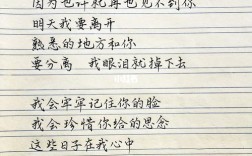 因为也许就再也见不到你
明天我要离开
熟悉的地方和你
要分离 我眼泪就掉下去
我会牢牢记住你的脸
我会珍惜你给的思念
这些日子在我心中